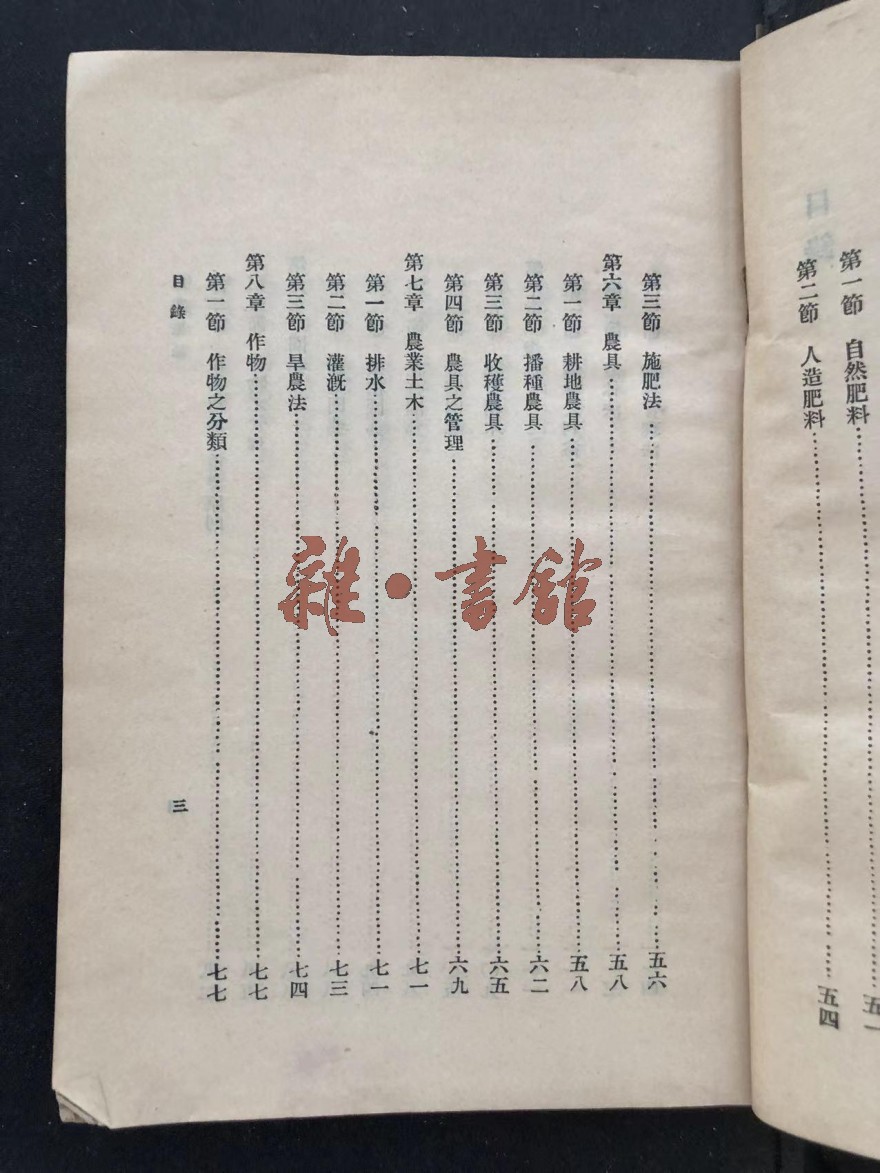 第一節　自然肥料……五一
第二節　人造肥料……五四
第三節　施肥法……五六
第六章　農具……五八
第一節　耕地農具……五八
第二節　播種農具……六二
第三節　收穫農具……六五
第四節　農具之管理……六九
第七章　農業土木……七一
第一節　排水……七一
第二節　灌漑……七三
第三節　旱農法……七四
第八章　作物……七七
第一節　作物之分類……七七
目錄
三
雜·書館